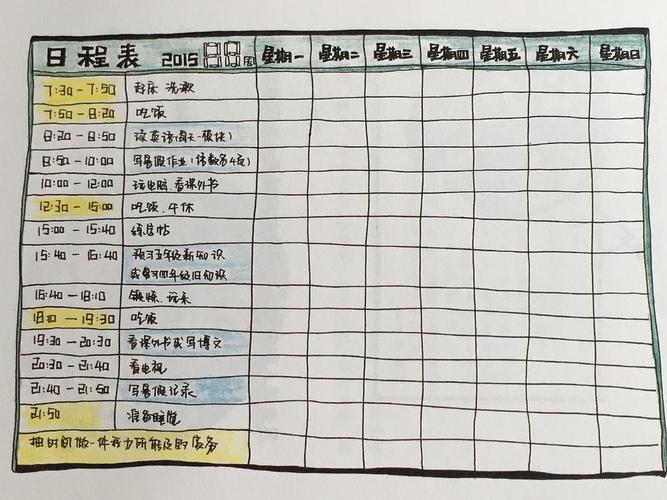 日程表 2015 周 星期一 星期二 星期三 星期四 星期五 星期六 星期日
7:30-7:50 起床 洗漱
7:50-8:20 吃饭
8:20-8:50 读英语(两天一模块)
8:50-10:00 写暑假作业(语数各4页)
10:00-12:00 玩电脑.看课外书
12:30-15:00 吃饭.午休
15:00-15:40 练字帖
15:40-16:40 预习五年级新知识
或复习四年级旧知识
16:40-18:10 锻炼.玩耍
18:10-19:30 吃饭
19:30-20:30 看课外书或写博文
20:30-21:40 看电视
21:40-21:50 写暑假记录
21:50 准备睡觉
抽时间做一件我力所能及的家务